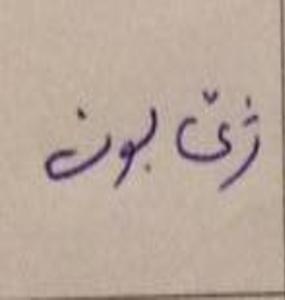 ژێ بوون